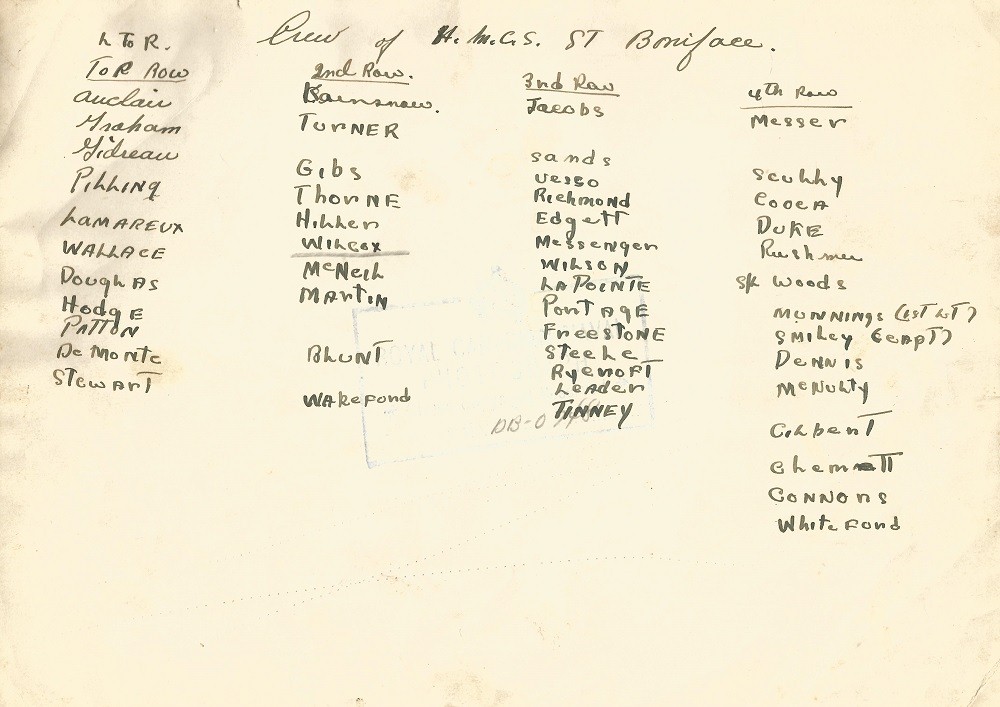 L To R.
Crew of H.M.C.S. ST Boniface.
ToP Row
Auclair
Graham
Gidreau
PILLINg
LAMAREUX
WALLACE
DougLAS
HodgE
PATTON
De Monte
STewarT
2nd Row.
TURNER
Gibs
ThorNE
HiLLier
WiLcox
McNeiL
MarTiN
BLUNT
WAkeFord
3rd Row
Jacobs
sands
Vesso
Richmond
EdgeTT
Messenger
WILSON
LAPOINTE
PorTAgE
FreeSTONE
STeeLe
RyecroFT
Leader
TINNEY
DB-0
4th Row
Messer
ScuLLy
CoocA
DUKE
Rushmer
S/L Woods
MUNNINGS (1ST LT)
SMiLey (CAPT)
DENNIS
McNuLTy
GiLberT
CONNORS
WhiteFord